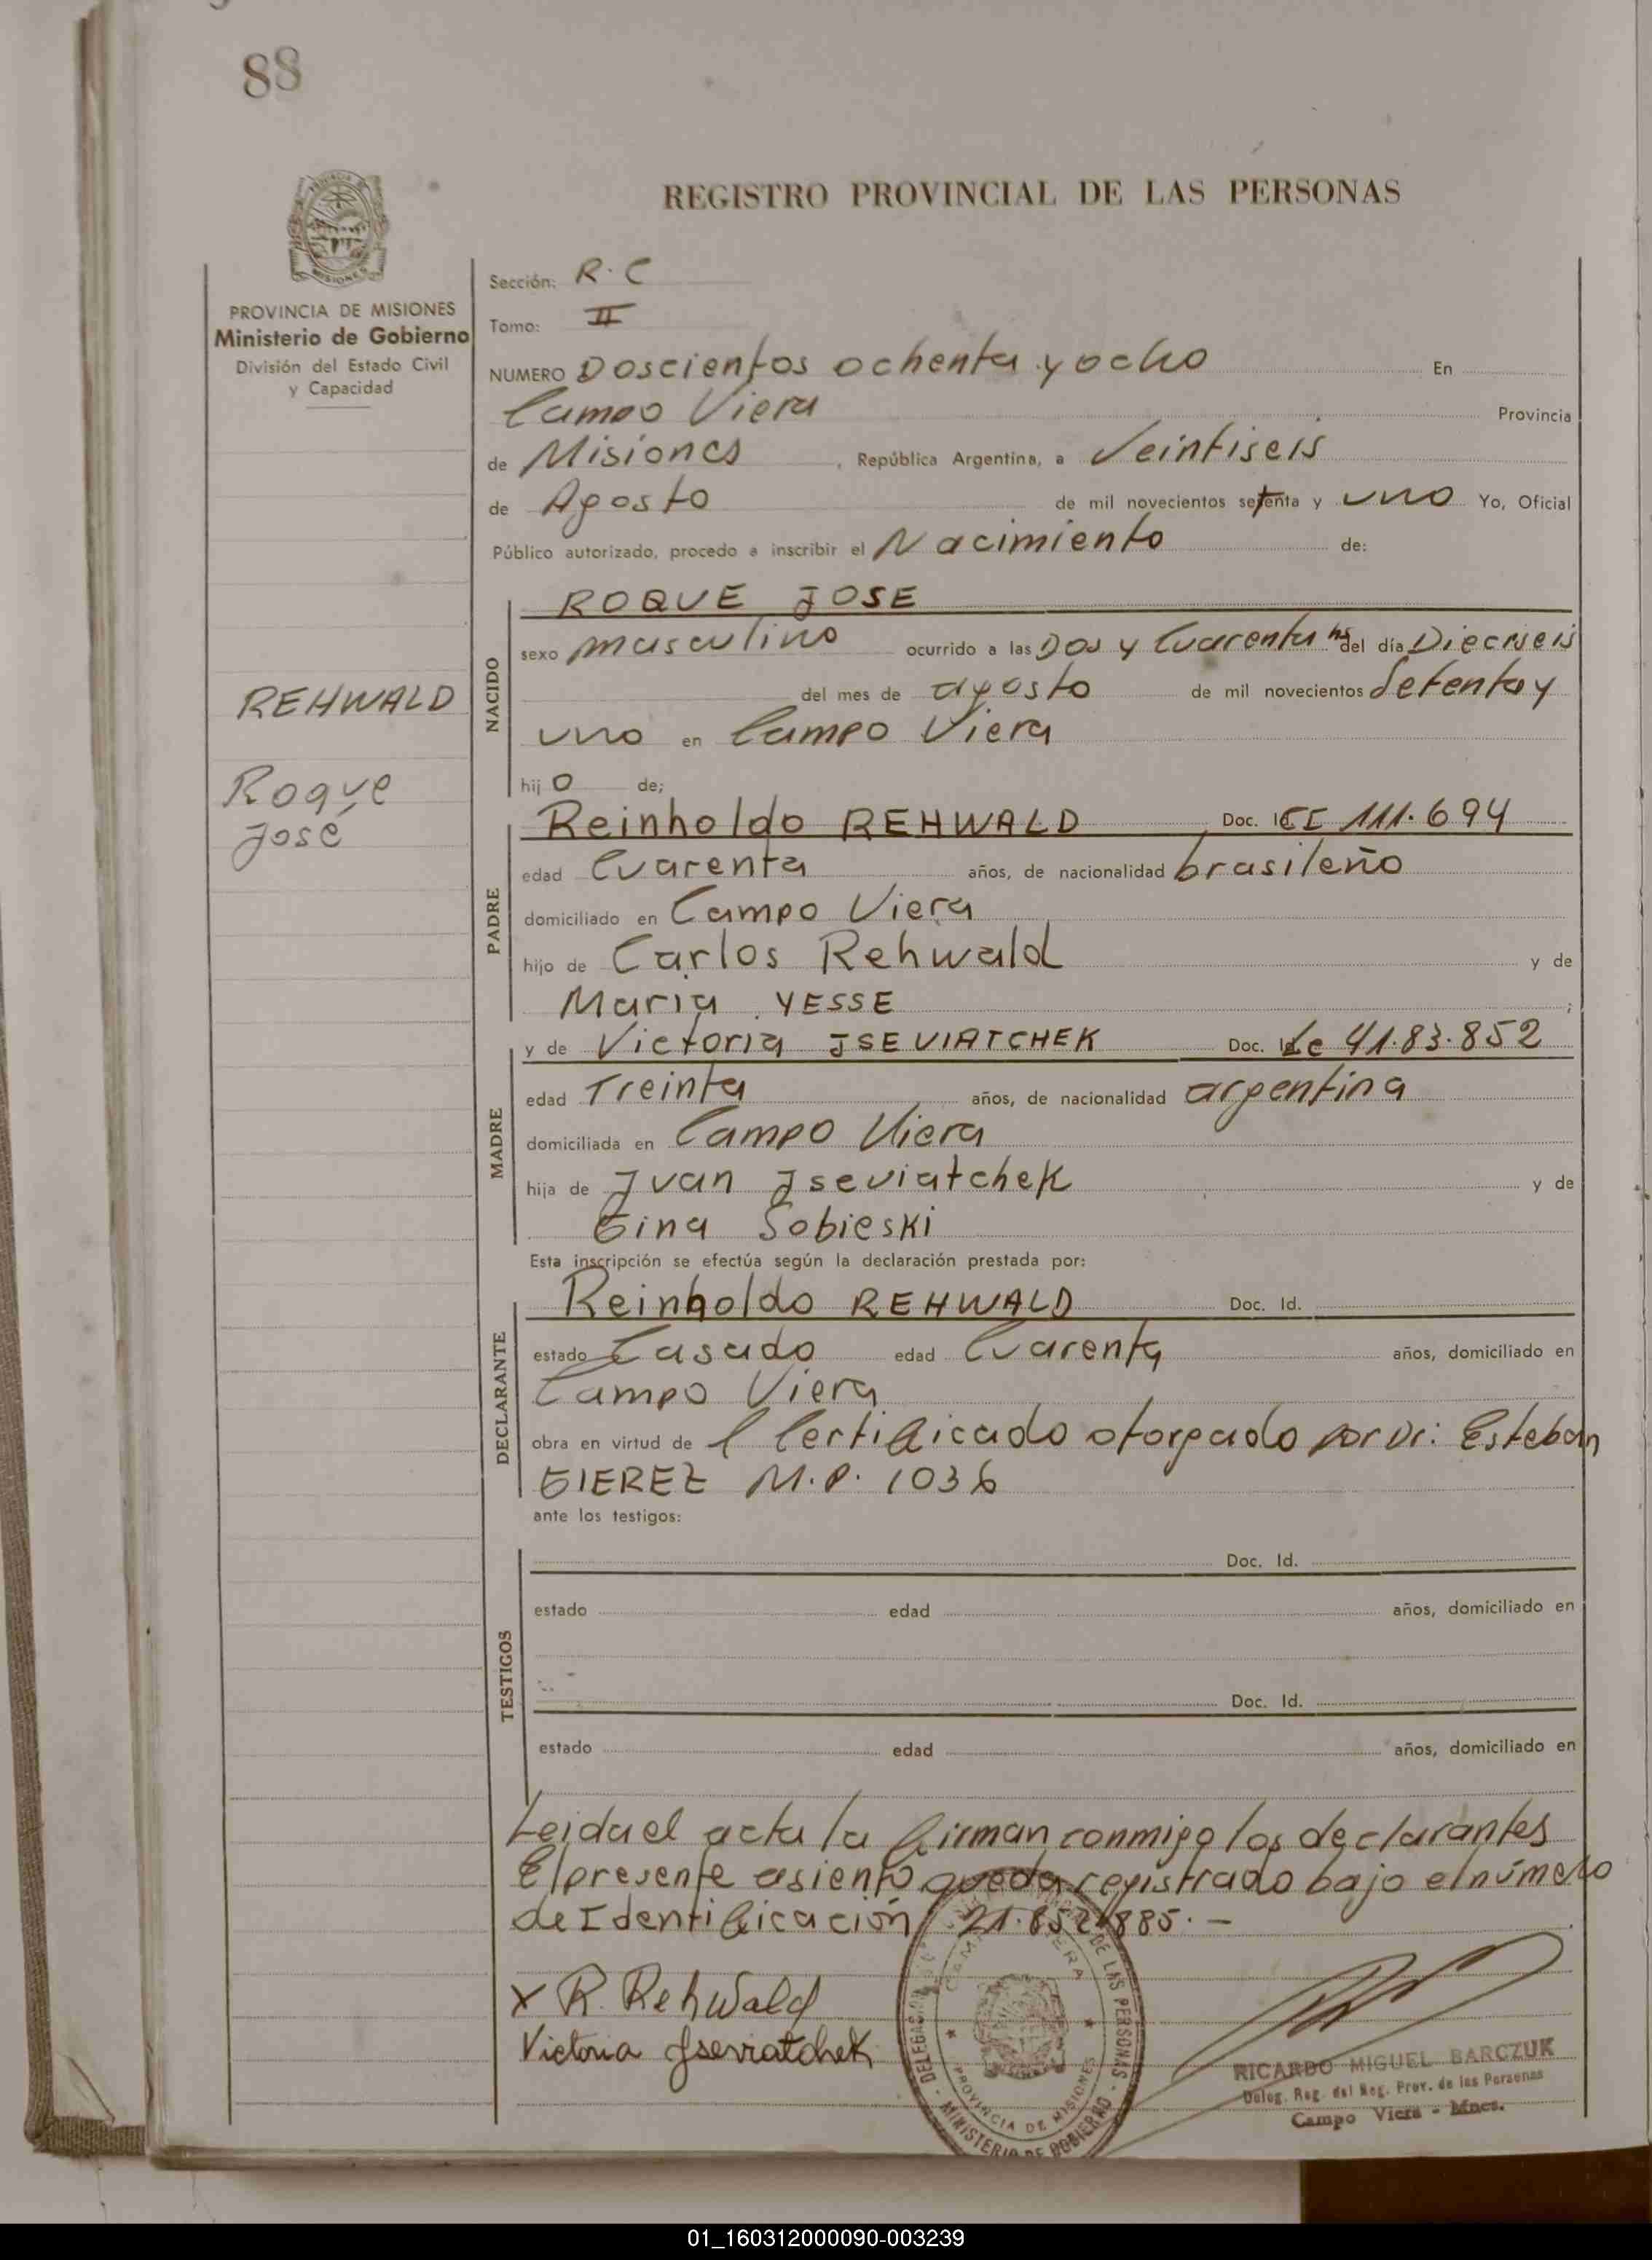 88
REGISTRO PROVINCIAL DE LAS PERSONAS
PROVINCIA DE MISIONES
Ministerio de Gobierno
División del Estado Civil
y Capacidad
REHWALD
Roque
José
Sección: R.C
Tomo: II
NUMERO Doscientos ochenta y ocho En
Campo Viera Provincia
de Misiones , República Argentina, a Veintiseis
de Agosto de mil novecientos setenta y uno Yo, Oficial
Público autorizado, procedo a inscribir el Nacimiento de:
NACIDO
ROQUE JOSE
sexo masculino ocurrido a las Dos y Cuarenta hs del día Dieciseis
del mes de agosto de mil novecientos Setenta y
uno en Campo Viera
hij o de;
PADRE
Reinholdo REHWALD Doc. I CI 111.694
edad Cuarenta años, de nacionalidad brasileño
domiciliado en Campo Viera
hijo de Carlos Rehwald y de
Maria YESSE ;
MADRE
y de Victoria JSEVIATCHEK Doc. Id Lc 41.83.852
edad Treinta años, de nacionalidad argentina
domiciliada en Campo Viera
hija de Jvan Jseviatchek y de
Gina Sobieski
Esta inscripción se efectúa según la declaración prestada por:
DECLARANTE
Reinholdo REHWALD Doc. Id.
estado Casado edad Cuarenta años, domiciliado en
Campo Viera
obra en virtud de l Certificado otorgado por Dr: Esteban
GIEREZ M.P. 1036
ante los testigos:
TESTIGOS
Doc. Id.
estado edad años, domiciliado en
Doc. Id.
estado edad años, domiciliado en
Leida el acta la firman conmigo los declarantes
El presente asiento queda registrado bajo el número
de Identificación 21.852885.-
X R. Rehwald
Victoria Jseviatchek
DE LAS PERSONAS - MINISTERIO DE GOBIERNO
PROVINCIA DE MISIONES
RICARDO MIGUEL BARCZUK
Deleg. Reg. del Reg. Prov. de las Personas
Campo Viera - Mnes.
01_160312000090-003239